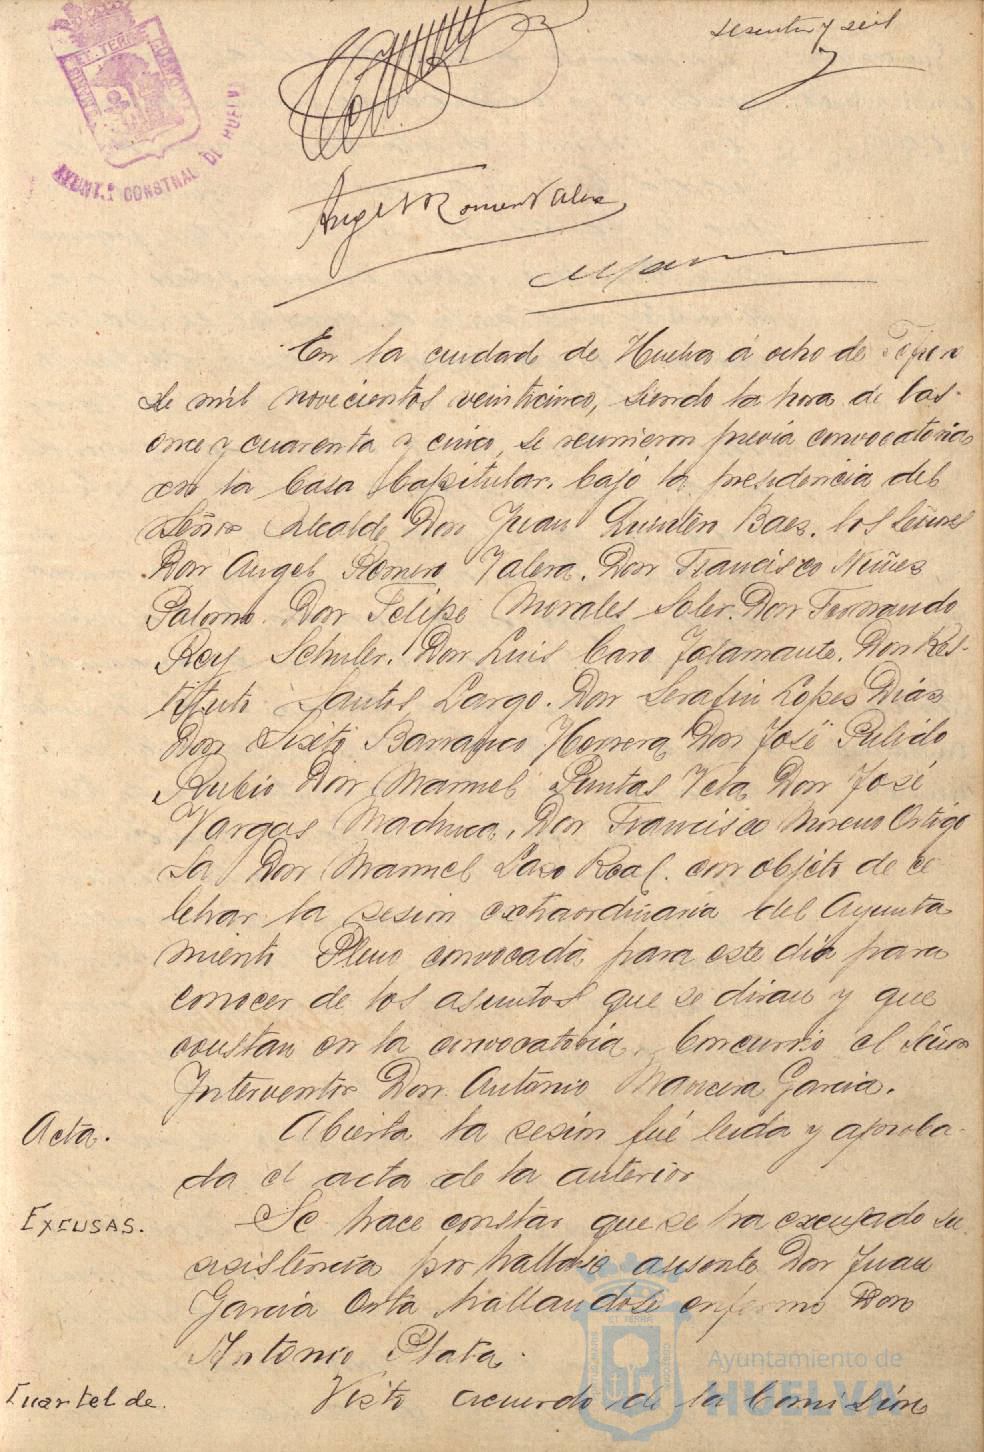 sesenta y seis
AYUNT.º CONSTNAL DE HUELVA
Angel Romero Valera
En la ciudad de Huelva á ocho de
de mil novecientos veinticinco, siendo la hora de las
once y cuarenta y cinco, se reunieron previa convocatoria
en la Casa Capitular, bajo la presidencia del
Señor Alcalde Don Juan Quintero Baez, los Señores
Don Angel Romero Valera, Don Francisco Nuñez
Palomo. Don Felipe Morales Soler. Don Fernando
Rey Schuler. Don Luis Caro Don Res-
tituto Santos Largo. Don Serafin Lopez Diáz
Don Sixto Barranco Herrera Don José Pulido
Rubio Don Manuel Puntas Vela Don José
Vargas Machuca, Don Francisco Moreno Ortigo
sa Don Manuel Lazo Real. con objeto de ce
lebrar la sesion extraordinaria del Ayunta
miento Pleno convocada para este dia para
conocer de los asuntos que se diran y que
constan en la convocatoria. Concurrio el Señor
Interventor Don Antonio Garcia.
Acta. Abierta la sesión fué leida y aproba-
da el acta de la anterior
EXCUSAS. Se hace constar que se ha excusado su
asistencia por hallarse ausente Don Juan
Garcia Orta hallandose enfermo Don
Antonio Plata.
Cuartel de. Visto acuerdo de la Comisión
Ayuntamiento de
HUELVA